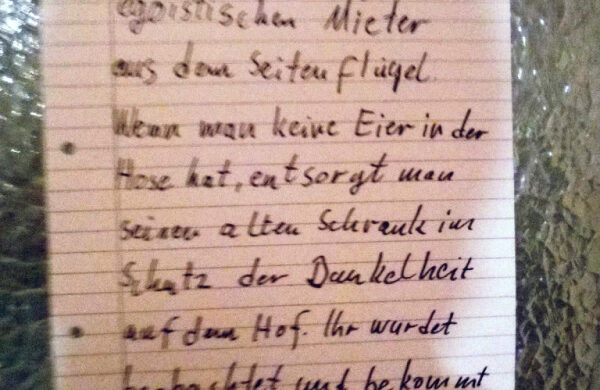 egoistischen Mieter
aus dem Seitenflügel.
Wenn man keine Eier in der
Hose hat, entsorgt man
seinen alten Schrank im
Schutz der Dunkelheit
auf dem Hof. Ihr wurdet
beobachtet und bekommt